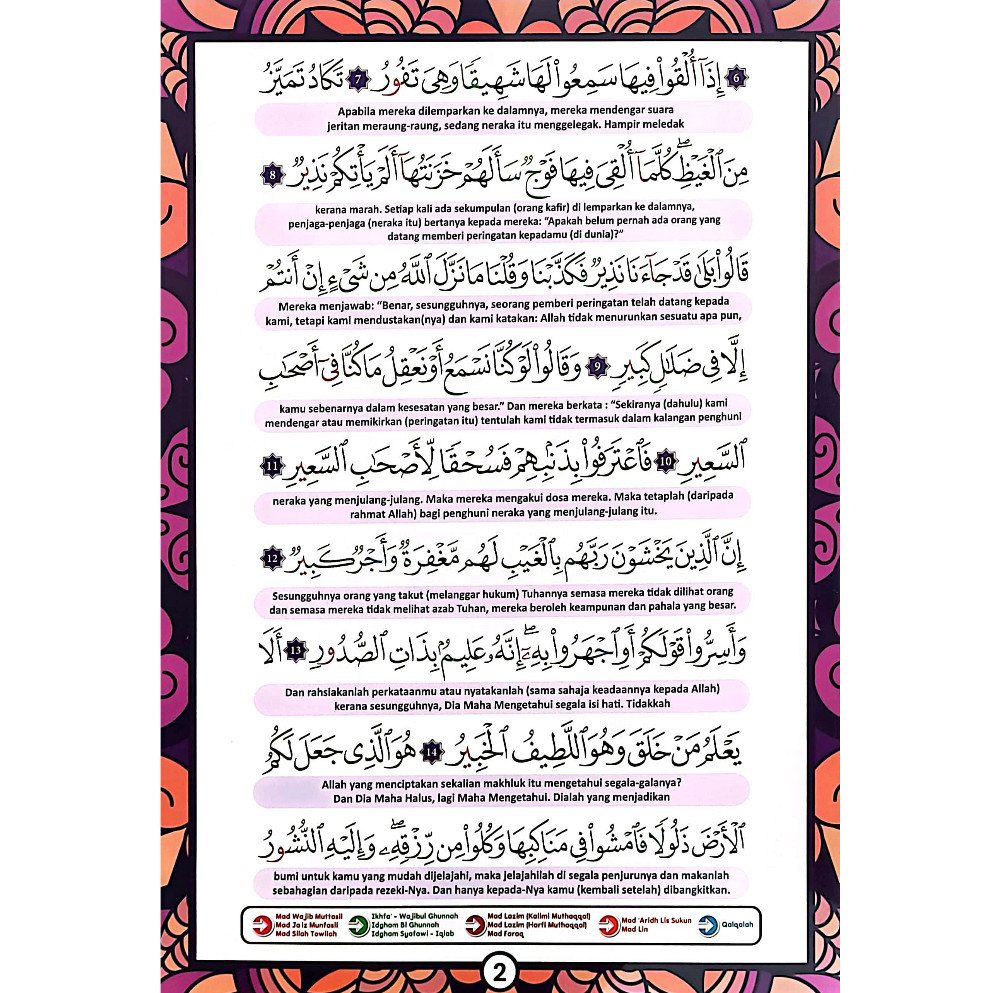 ٦ إِذَآ أُلْقُوا۟ فِيهَا سَمِعُوا۟ لَهَا شَهِيقًا وَهِىَ تَفُورُ ٧ تَكَادُ تَمَيَّزُ
Apabila mereka dilemparkan ke dalamnya, mereka mendengar suara
jeritan meraung-raung, sedang neraka itu menggelegak. Hampir meledak
مِنَ ٱلْغَيْظِ ۖ كُلَّمَآ أُلْقِىَ فِيهَا فَوْجٌ سَأَلَهُمْ خَزَنَتُهَآ أَلَمْ يَأْتِكُمْ نَذِيرٌ ٨
kerana marah. Setiap kali ada sekumpulan (orang kafir) di lemparkan ke dalamnya,
penjaga-penjaga (neraka itu) bertanya kepada mereka: “Apakah belum pernah ada orang yang
datang memberi peringatan kepadamu (di dunia)?”
قَالُوا۟ بَلَىٰ قَدْ جَآءَنَا نَذِيرٌ فَكَذَّبْنَا وَقُلْنَا مَا نَزَّلَ ٱللَّهُ مِن شَىْءٍ إِنْ أَنتُمْ
Mereka menjawab: “Benar, sesungguhnya, seorang pemberi peringatan telah datang kepada
kami, tetapi kami mendustakan(nya) dan kami katakan: Allah tidak menurunkan sesuatu apa pun,
إِلَّا فِى ضَلَـٰلٍ كَبِيرٍ ٩ وَقَالُوا۟ لَوْ كُنَّا نَسْمَعُ أَوْ نَعْقِلُ مَا كُنَّا فِىٓ أَصْحَـٰبِ
kamu sebenarnya dalam kesesatan yang besar.” Dan mereka berkata : “Sekiranya (dahulu) kami
mendengar atau memikirkan (peringatan itu) tentulah kami tidak termasuk dalam kalangan penghuni
ٱلسَّعِيرِ ١٠ فَٱعْتَرَفُوا۟ بِذَنۢبِهِمْ فَسُحْقًا لِّأَصْحَـٰبِ ٱلسَّعِيرِ ١١
neraka yang menjulang-julang. Maka mereka mengakui dosa mereka. Maka tetaplah (daripada
rahmat Allah) bagi penghuni neraka yang menjulang-julang itu.
إِنَّ ٱلَّذِينَ يَخْشَوْنَ رَبَّهُم بِٱلْغَيْبِ لَهُم مَّغْفِرَةٌ وَأَجْرٌ كَبِيرٌ ١٢
Sesungguhnya orang yang takut (melanggar hukum) Tuhannya semasa mereka tidak dilihat orang
dan semasa mereka tidak melihat azab Tuhan, mereka beroleh keampunan dan pahala yang besar.
وَأَسِرُّوا۟ قَوْلَكُمْ أَوِ ٱجْهَرُوا۟ بِهِۦٓ ۖ إِنَّهُۥ عَلِيمٌۢ بِذَاتِ ٱلصُّدُورِ ١٣ أَلَا
Dan rahsiakanlah perkataanmu atau nyatakanlah (sama sahaja keadaannya kepada Allah)
kerana sesungguhnya, Dia Maha Mengetahui segala isi hati. Tidakkah
يَعْلَمُ مَنْ خَلَقَ وَهُوَ ٱللَّطِيفُ ٱلْخَبِيرُ ١٤ هُوَ ٱلَّذِى جَعَلَ لَكُمُ
Allah yang menciptakan sekalian makhluk itu mengetahui segala-galanya?
Dan Dia Maha Halus, lagi Maha Mengetahui. Dialah yang menjadikan
ٱلْأَرْضَ ذَلُولًا فَٱمْشُوا۟ فِى مَنَاكِبِهَا وَكُلُوا۟ مِن رِّزْقِهِۦ ۖ وَإِلَيْهِ ٱلنُّشُورُ
bumi untuk kamu yang mudah dijelajahi, maka jelajahilah di segala penjurunya dan makanlah
sebahagian daripada rezeki-Nya. Dan hanya kepada-Nya kamu (kembali setelah) dibangkitkan.
Mad Wajib Muttasil
Mad Ja'iz Munfasil
Mad Silah Towilah
Ikhfa' - Wajibul Ghunnah
Idgham Bi Ghunnah
Idgham Syafawi - Iqlab
Mad Lazim (Kalimi Muthaqqal)
Mad Lazim (Harfi Muthaqqal)
Mad Faraq
Mad 'Aridh Lis Sukun
Mad Lin
Qalqalah
2